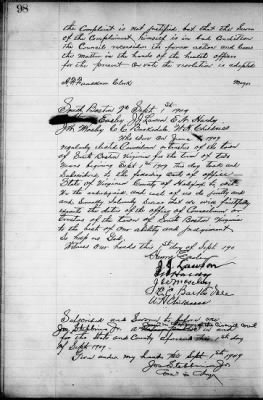 98
the Complaint is not justified, but that the
of the Complainant himself is in bad Condition
the Council reconsider its former action and leave
the matter in the hands of the health officer
for the present. On vote the resolution is adopted
Clerk
Mayor
South Boston Va Sept 1st 1909
Easley J J Lawson E. N. Hardy
J W Mosby C C Barksdale W H Childress
Who were on June 1909
regularly elected Councilmen & trustees of the town
of South Boston Virginia for the term of two
Years begining Sept 1st 1909 this day took and
Subscribed to the following oath of office
State of Virginia County of Halifax to wit
We the undersigned and each of us do
and Severally Solemnly Swear that we will faithfully
execute the duties of the office of Councilmen and
trustees of the Town of South Boston Virginia
to the best of our ability and judgement
So help us God.
Witness our hands this 1st day of Sept 190
Easley
J. J. Lawson
E. N. Hardy
J W Mosby
C. C. Barksdale
W H Childress
Subscribed and Sworn to before me
Jos Stebbins Jr a
for the State and County aforesaid this 1st day
of Sept 1909.
Given under my hand this Sept 1st 1909
Jos Stebbins Jr.